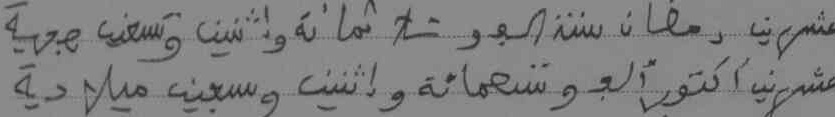 عشرين رمضان سنة الف و ثلاثمائة واثنين وتسعين هجرية
عشرين اكتوبر الف و تسعمائة و اثنين وسبعين ميلادية